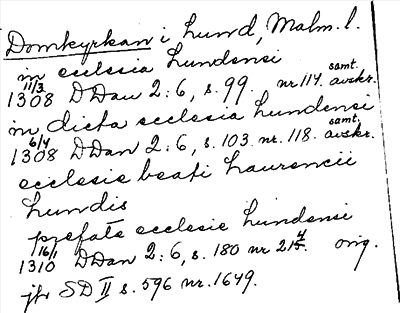 Domkyrkan i Lund, Malm. l.
in ecclesia Lundensi
1308 11/3 DDan 2:6, s. 99. nr 114. samt. avskr.
in dicta ecclesia Lundensi
1308 6/4 DDan 2:6, s. 103. nr. 118. samt. avskr.
ecclesie beati Laurencii
Lundis
prefate ecclesie Lundensi
1310 16/1 DDan 2:6, s. 180 nr 214. orig.
jfr SD II s. 596 nr. 1649.